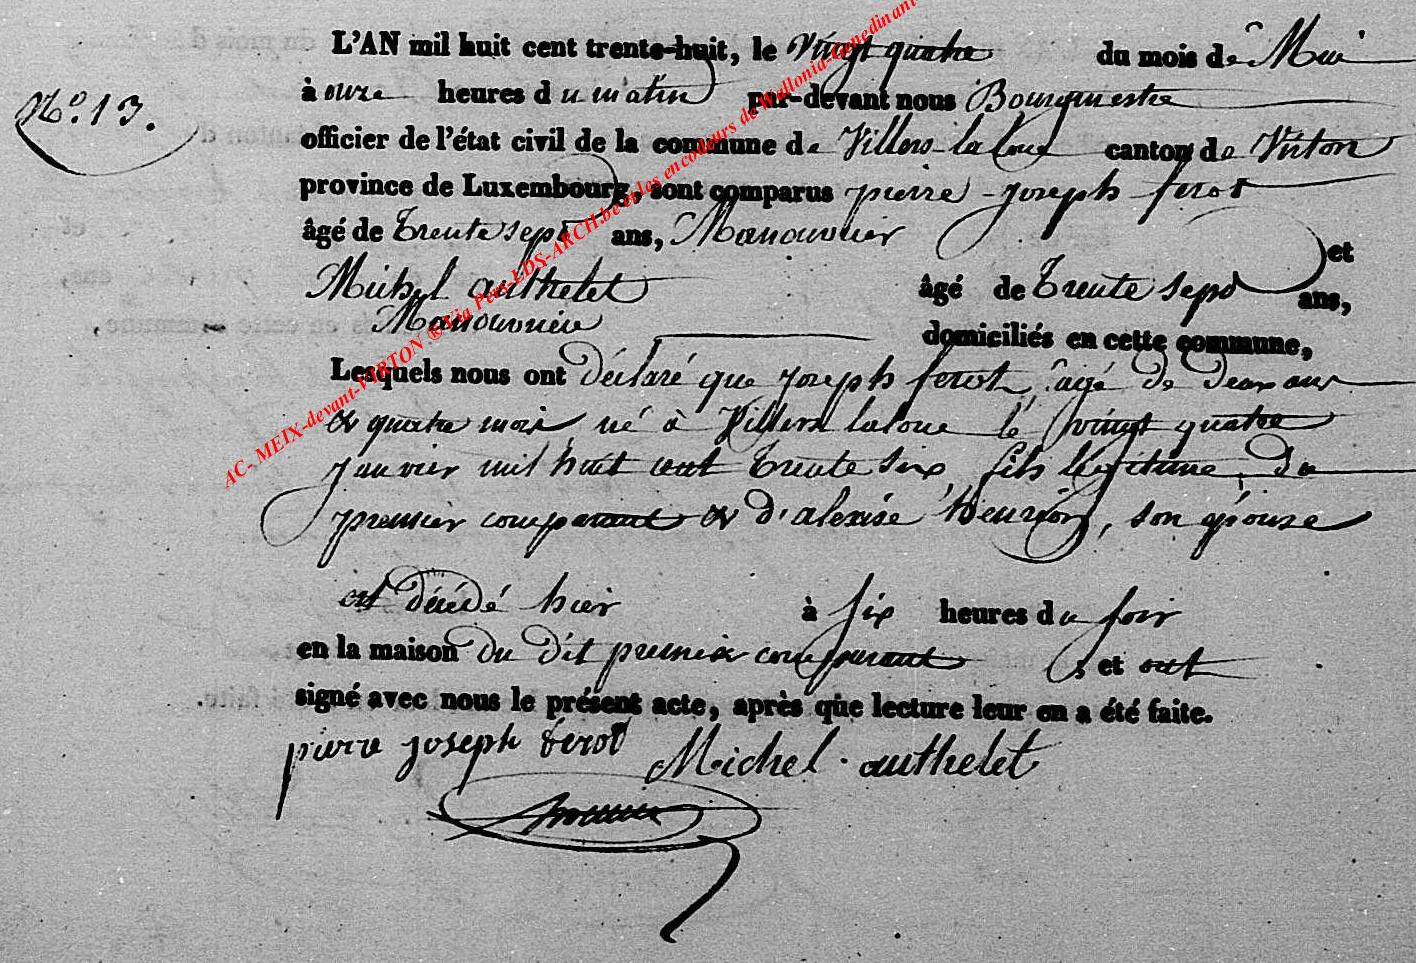 L'AN mil huit cent trente-huit, le vingt quatre du mois de Mai
N.º 13. à onze heures du matin par-devant nous Bourgmestre
officier de l'état civil de la commune de Villers-la loue canton de Virton
province de Luxembourg, sont comparus pierre-joseph ferot
âgé de trente sept ans, Manouvrier et
Michel authelet âgé de trente sept ans,
Manouvrier domiciliés en cette commune,
Lesquels nous ont déclaré que joseph ferot, âgé de deux ans
& quatre mois né à Villers laloue le vingt quatre
janvier mil huit cent trente six, fils légitime du
premier comparant & d'alexise henrion, son épouse
est décédé hier à six heures du soir
en la maison du dit premier comparant, et ont
signé avec nous le présent acte, après que lecture leur en a été faite.
pierre joseph ferot Michel authelet
AC- MEIX-devant-VIRTON ® Via Pers-LDS-ARCH.be et les encodeurs de Wallonia-Genedinant